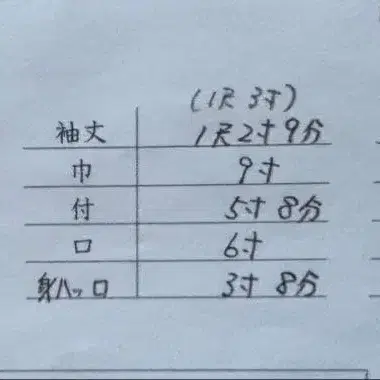 (1尺 3寸)
袖丈 1尺2寸9分
巾 9寸
付 5寸 8分
口 6寸
身ハッ口 3寸 8分